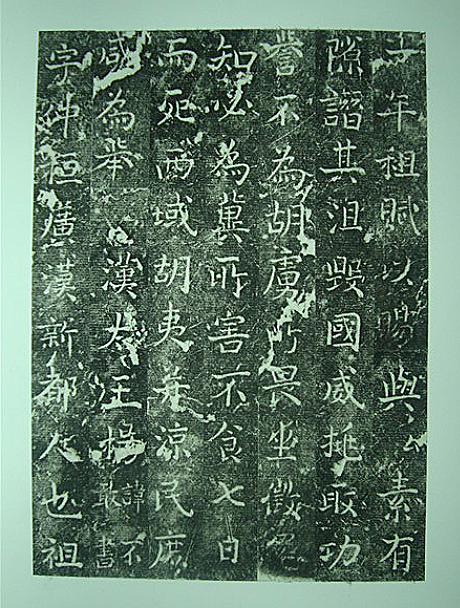 年租賦以賜與公素有
隙譖其沮毀國威挑取功
譽不為胡虜所畏坐徵
知必為冀所害不食七日
而死西域胡夷并涼民庶
咸為舉 漢太王楊諱不敢書
字仲桓廣漢新都人也祖